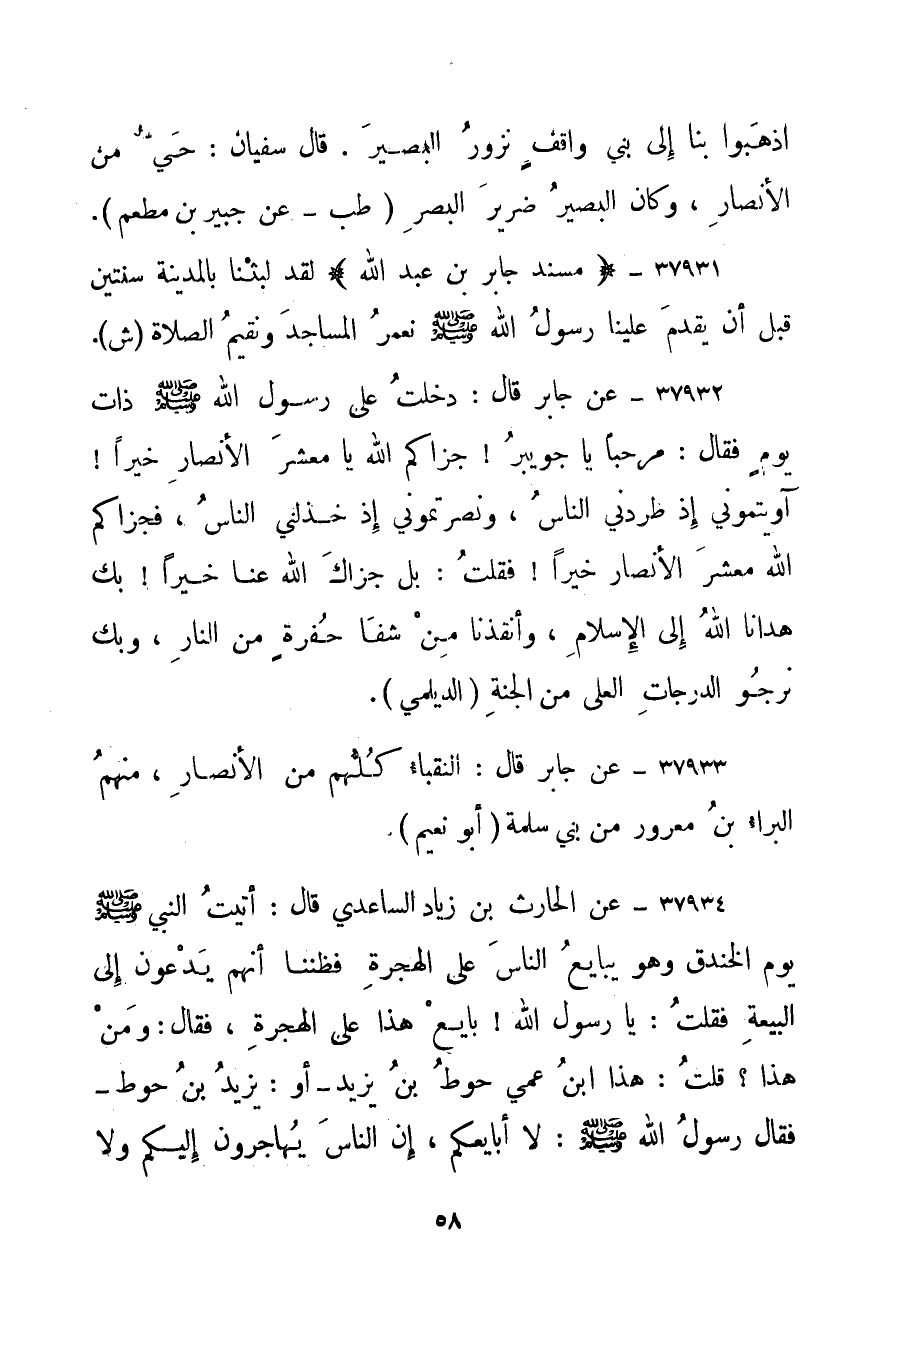 اذهَبوا بنا إلى بني واقفٍ نزورُ البصيرَ . قال سفيان : حَيٌّ من
الأنصارِ ، وكان البصيرُ ضريرَ البصرِ ( طب - عن جبير بن مطعم ).
٣٧٩٣١ - ﴿ مسند جابر بن عبد الله ﴾ لقد لبثْنا بالمدينة سنتين
قبل أن يقدمَ علينا رسولُ الله ﷺ نعمرُ المساجدَ ونقيمُ الصلاة (ش).
٣٧٩٣٢ - عن جابر قال : دخلتُ على رسول الله ﷺ ذات
يومٍ فقال : مرحباً يا جويبرُ ! جزاكم الله يا معشرَ الأنصارِ خيراً !
آويتموني إذ طردني الناسُ ، ونصرتموني إذ خذلني الناسُ ، فجزاكم
الله معشرَ الأنصار خيراً ! فقلتُ : بل جزاكَ الله عنا خيراً ! بك
هدانا اللهُ إلى الإسلامِ ، وأنقذنا مِنْ شفَا حُفرةٍ من النارِ ، وبك
نرجُو الدرجاتِ العلى من الجنةِ ( الديلمي ).
٣٧٩٣٣ - عن جابر قال : النقباء كُلُّهم من الأنصارِ ، منهمُ
البراء بنُ معرور من بني سلمة ( أبو نعيم ).
٣٧٩٣٤ - عن الحارث بن زياد الساعدي قال : أتيتُ النبي ﷺ
يوم الخندق وهو يبايعُ الناسَ على الهجرةِ فظننا أنهم يَدْعون إلى
البيعةِ فقلتُ : يا رسول الله ! بايعْ هذا على الهجرةِ ، فقال : ومَنْ
هذا ؟ قلتُ : هذا ابنُ عمي حوطُ بنُ يزيد - أو : يزيدُ بنُ حوط -
فقال رسولُ الله ﷺ : لا أبايعكم ، إن الناسَ يُهاجرون إليكم ولا
٥٨